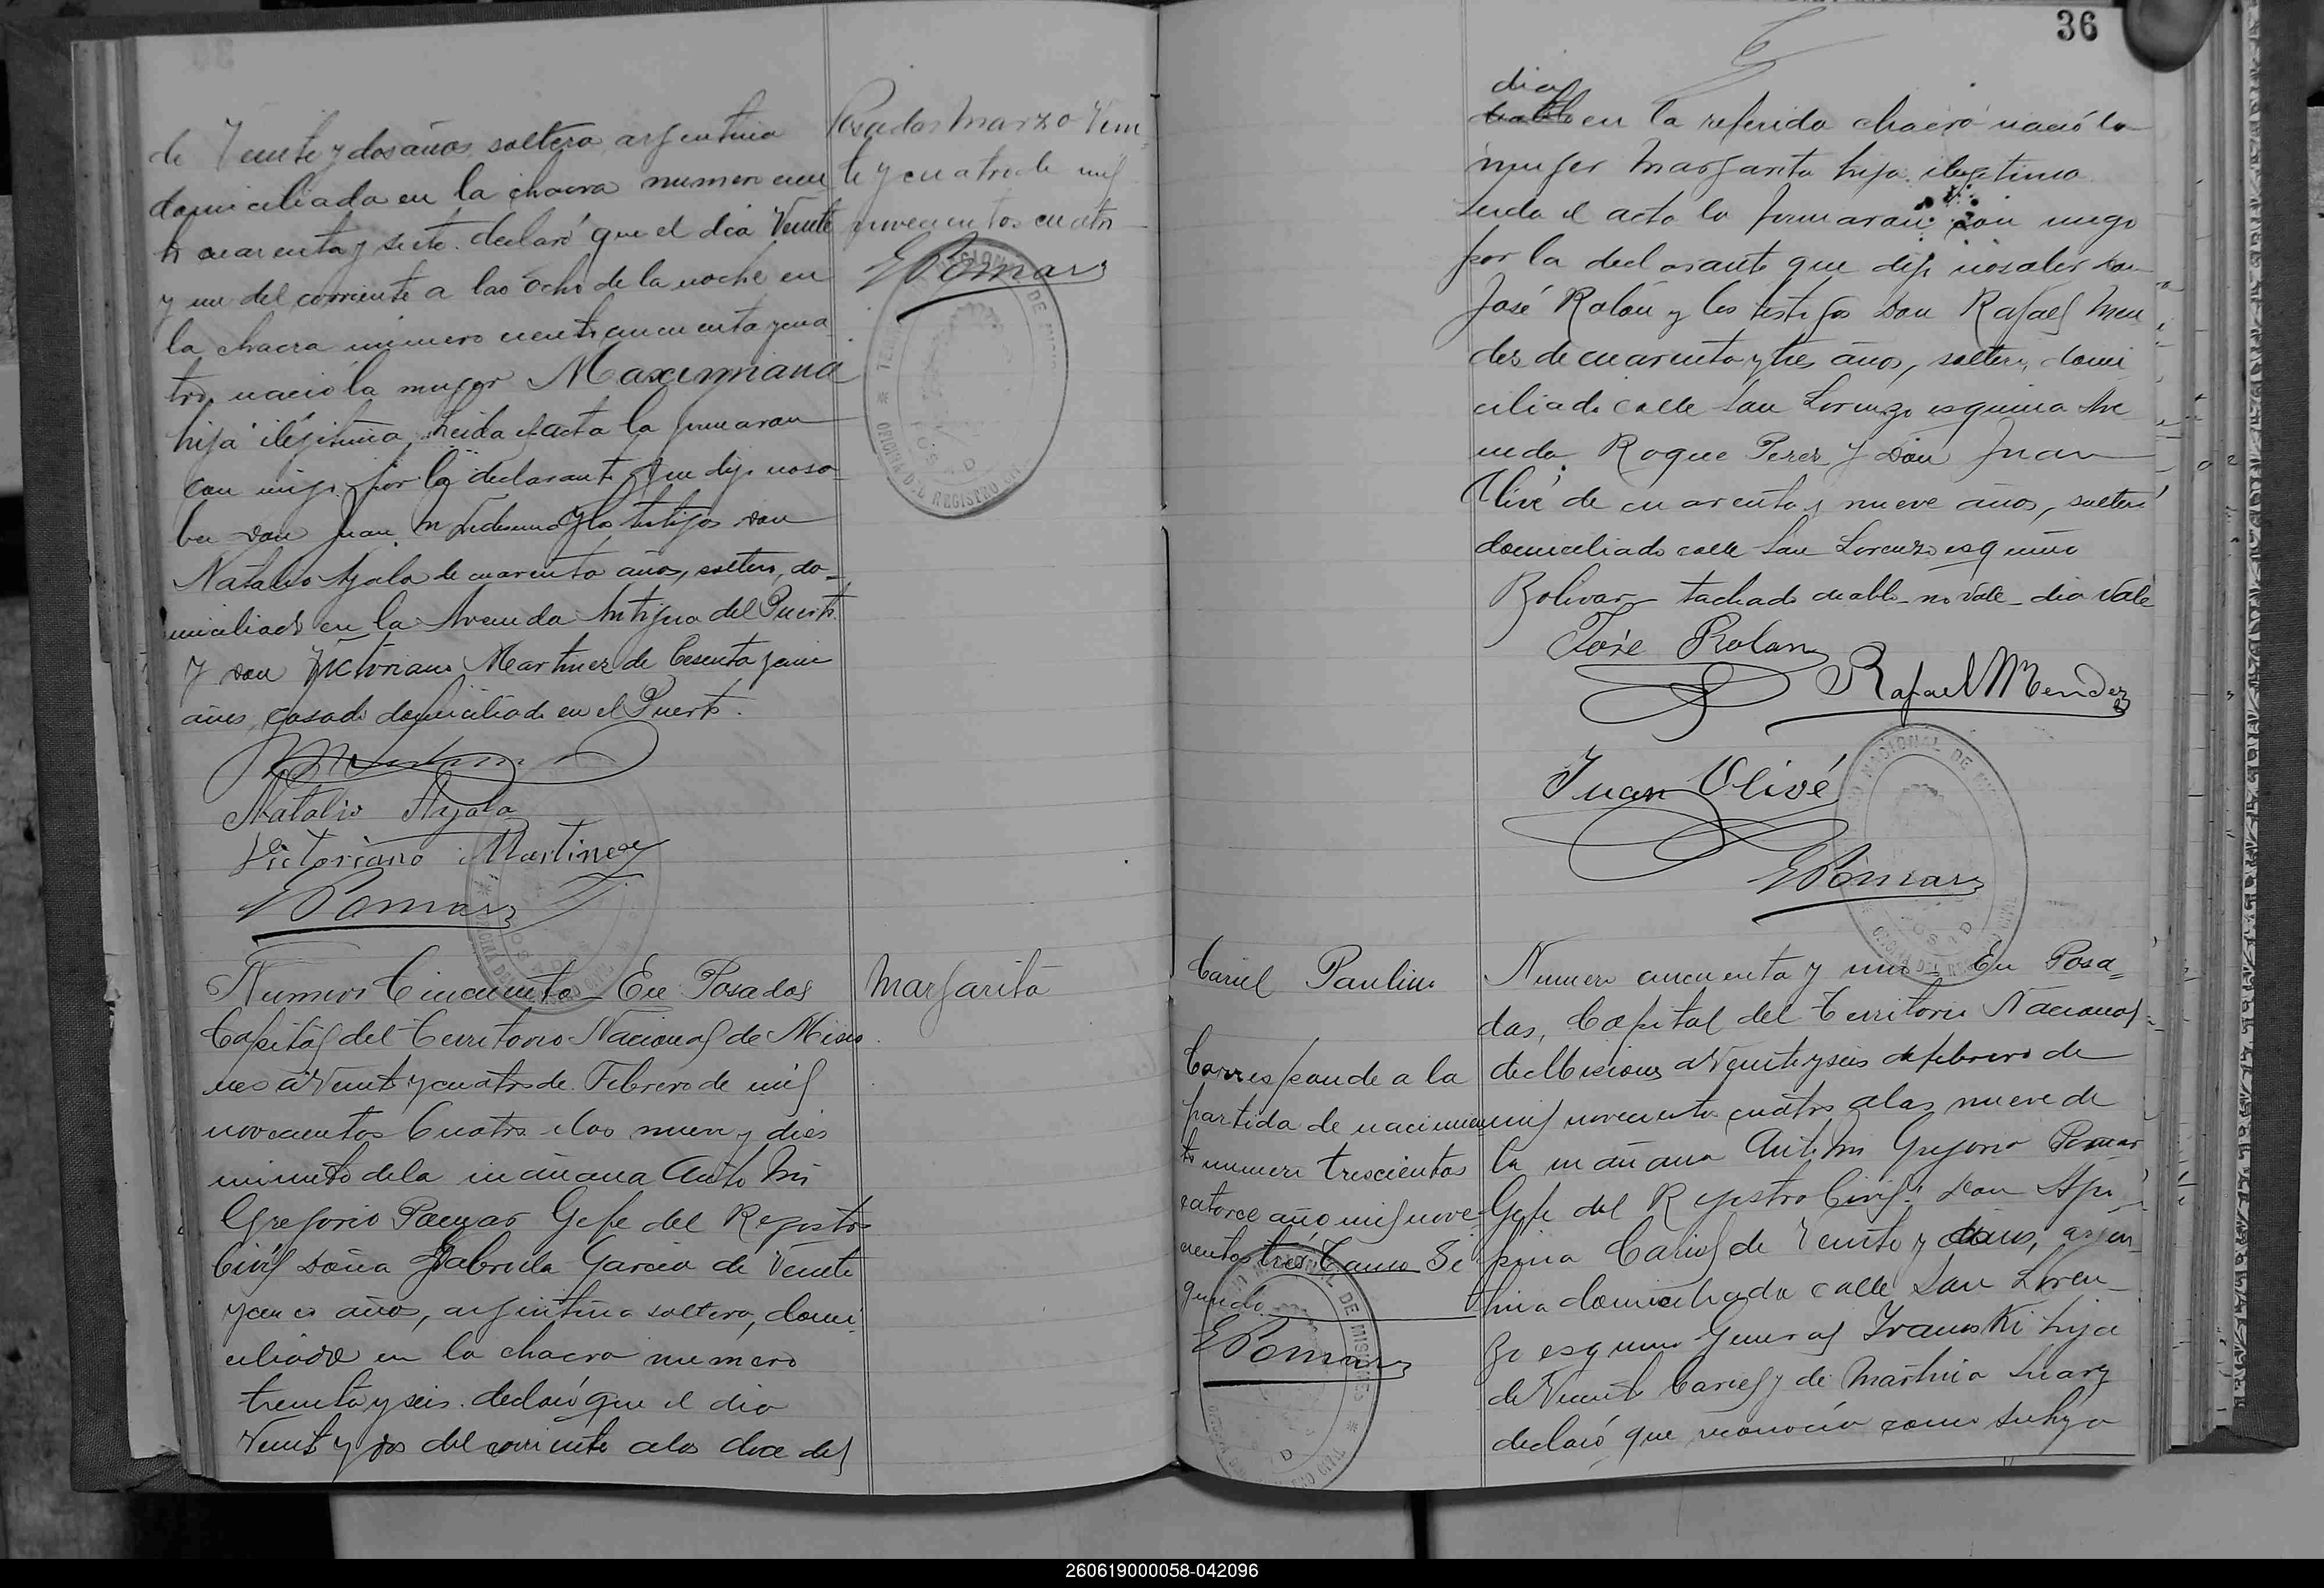 de Veinte y dos años soltera argentina
domiciliada en la chacra numero cien
to cuarenta y siete. declaró que el dia Veinte
y uno del corriente a las ocho de la noche en
la chacra número ciento cincuenta y cua
tro, nació la muger Maximiana
hija ilégitima, Leida el acta la firmaran
con migo por la declarante que dijo no sa
ber don Juan Ledesma y los testigos don
Natalio Ayala de cuarenta años, soltero, do-
miciliado en la Avenida Antigua del Puerto
y don Victoriano Martinez de Cesenta y cinco
años, casado domiciliado en el Puerto.
Natalio Ayala
Victoriano Martinez
GPomar
Posadas Marzo Vein
te y cuatro de mil
novecientos cuatro
GPomar
Numero Cincuenta - En Posadas
Capital del Territorio Nacional de Misio
nes a Veinte y cuatro de Febrero de mil
novecientos Cuatro a las nueve y dies
minutos de la mañana Ante Mi
Gregorio Pomar Gefe del Registro
Civil Doña Gabriela Garcia de Veinte
y cinco años, argentina soltera, domi
ciliada en la chacra numero
treinta y seis. declaró que el dia
Veinte y dos del corriente a las doce del
Margarita
36
dia
en la referida chacra nació la
muger Margarita hija ilegitima
Leida el acta la firmaran con migo
por la declarante que dijo no saber don
José Rolón y los testigos Don Rafael Men
dez de cuarenta y tres años, soltero, domi
ciliado calle San Lorenzo esquina Ave
nida Roque Perez y Don Juan
Olivé de cuarenta y nueve años, soltero
domiciliado calle San Lorenzo esquina
Bolivar - tachado diablo - no Vale - dia Vale
José Rolon
Rafael Mendez
Juan Olivé
GPomar
Cariel Paulino
Corresponde a la
partida de nacimien
to numero trescientos
catorce año mil nove
cientos tres, Tomo Se
gundo
GPomar
Numero cincuenta y uno - En Posa=
das, Capital del Territorio Nacional
de Misiones a Veinte y seis de febrero de
mil novecientos cuatro a las nueve de
la mañana Ante Mi Gregorio Pomar
Gefe del Registro Civil Don
Cariel de Veinte y años, argen
tina domiciliada calle San Loren-
zo esquina General hija
de Vicente Cariel y de Martina Suarez
declaró que reconocia como su hijo
260619000058-042096